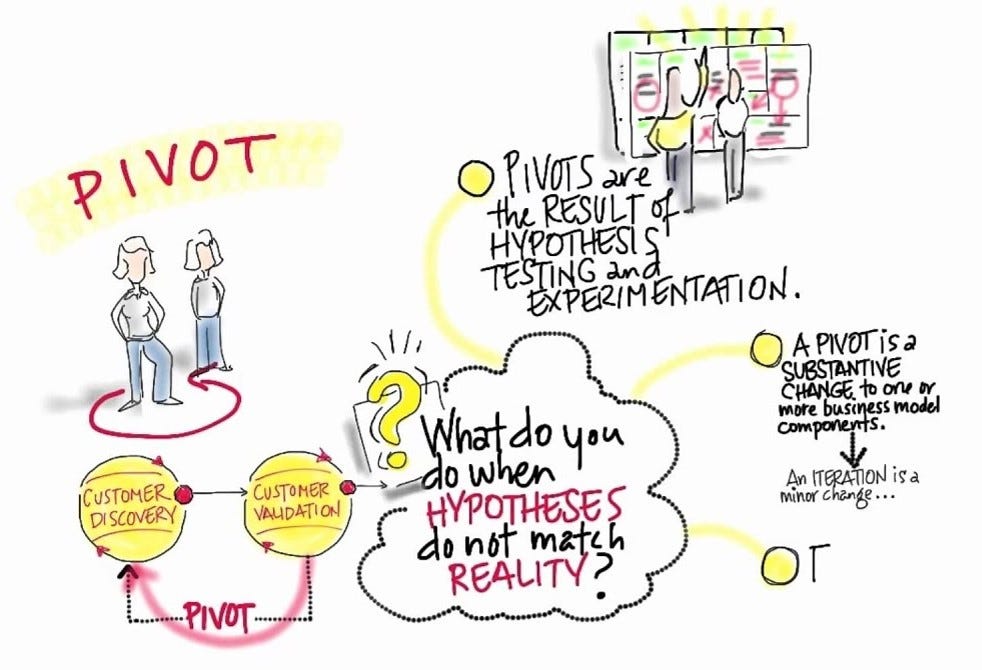 PIVOT
PIVOTS are
the RESULT of
HYPOTHESIS
TESTING and
EXPERIMENTATION.
A PIVOT is a
SUBSTANTIVE
CHANGE to one or
more business model
components.
An ITERATION is a
minor change...
T
?
What do you
do when
HYPOTHESES
do not match
REALITY?
CUSTOMER
DISCOVERY
CUSTOMER
VALIDATION
PIVOT